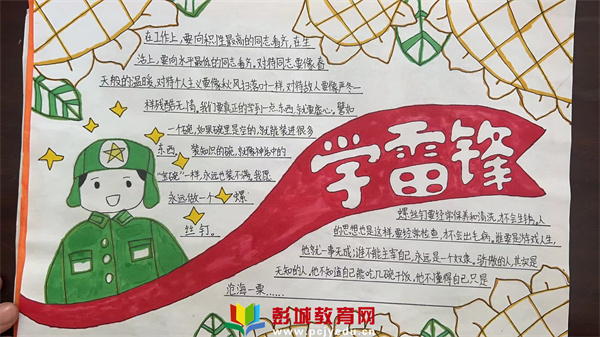 在工作上,要向积性最高的同志看齐,在生
活上,要向水平最低的同志看齐。对待同志要像春
天般的温暖,对待个人主义要像秋风扫落叶一样,对待敌人要像严冬一
样残酷无情。我们要真正的学到一点东西,就要虚心。譬如
一个碗,如果碗里是空的,就能装进很多
东西,装知识的碗,就像神话中的
"宝碗"一样,永远也装不满。我愿
永远做一个螺
丝钉。
学雷锋
螺丝钉要经常保养和清洗,才不会生锈。人
的思想也是这样,要经常检查,才不会出毛病。谁要是游戏人生,
他就一事无成;谁不能主宰自己,永远是一个奴隶。骄傲的人,其实是
无知的人,他不知道自己能吃几碗干饭,他不懂得自己只是
沧海一粟……
彭城教育网
www.pcjyedu.cn